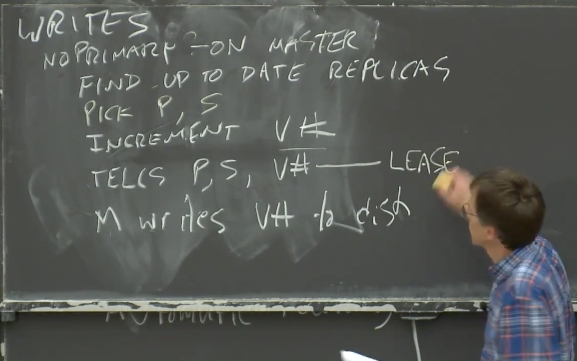 WRITES
NO PRIMARY - ON MASTER
FIND UP TO DATE REPLICAS
PICK P, S
INCREMENT V#
TELLS P, S, V# — LEASE
M writes V# to disk
AUTOMATIC